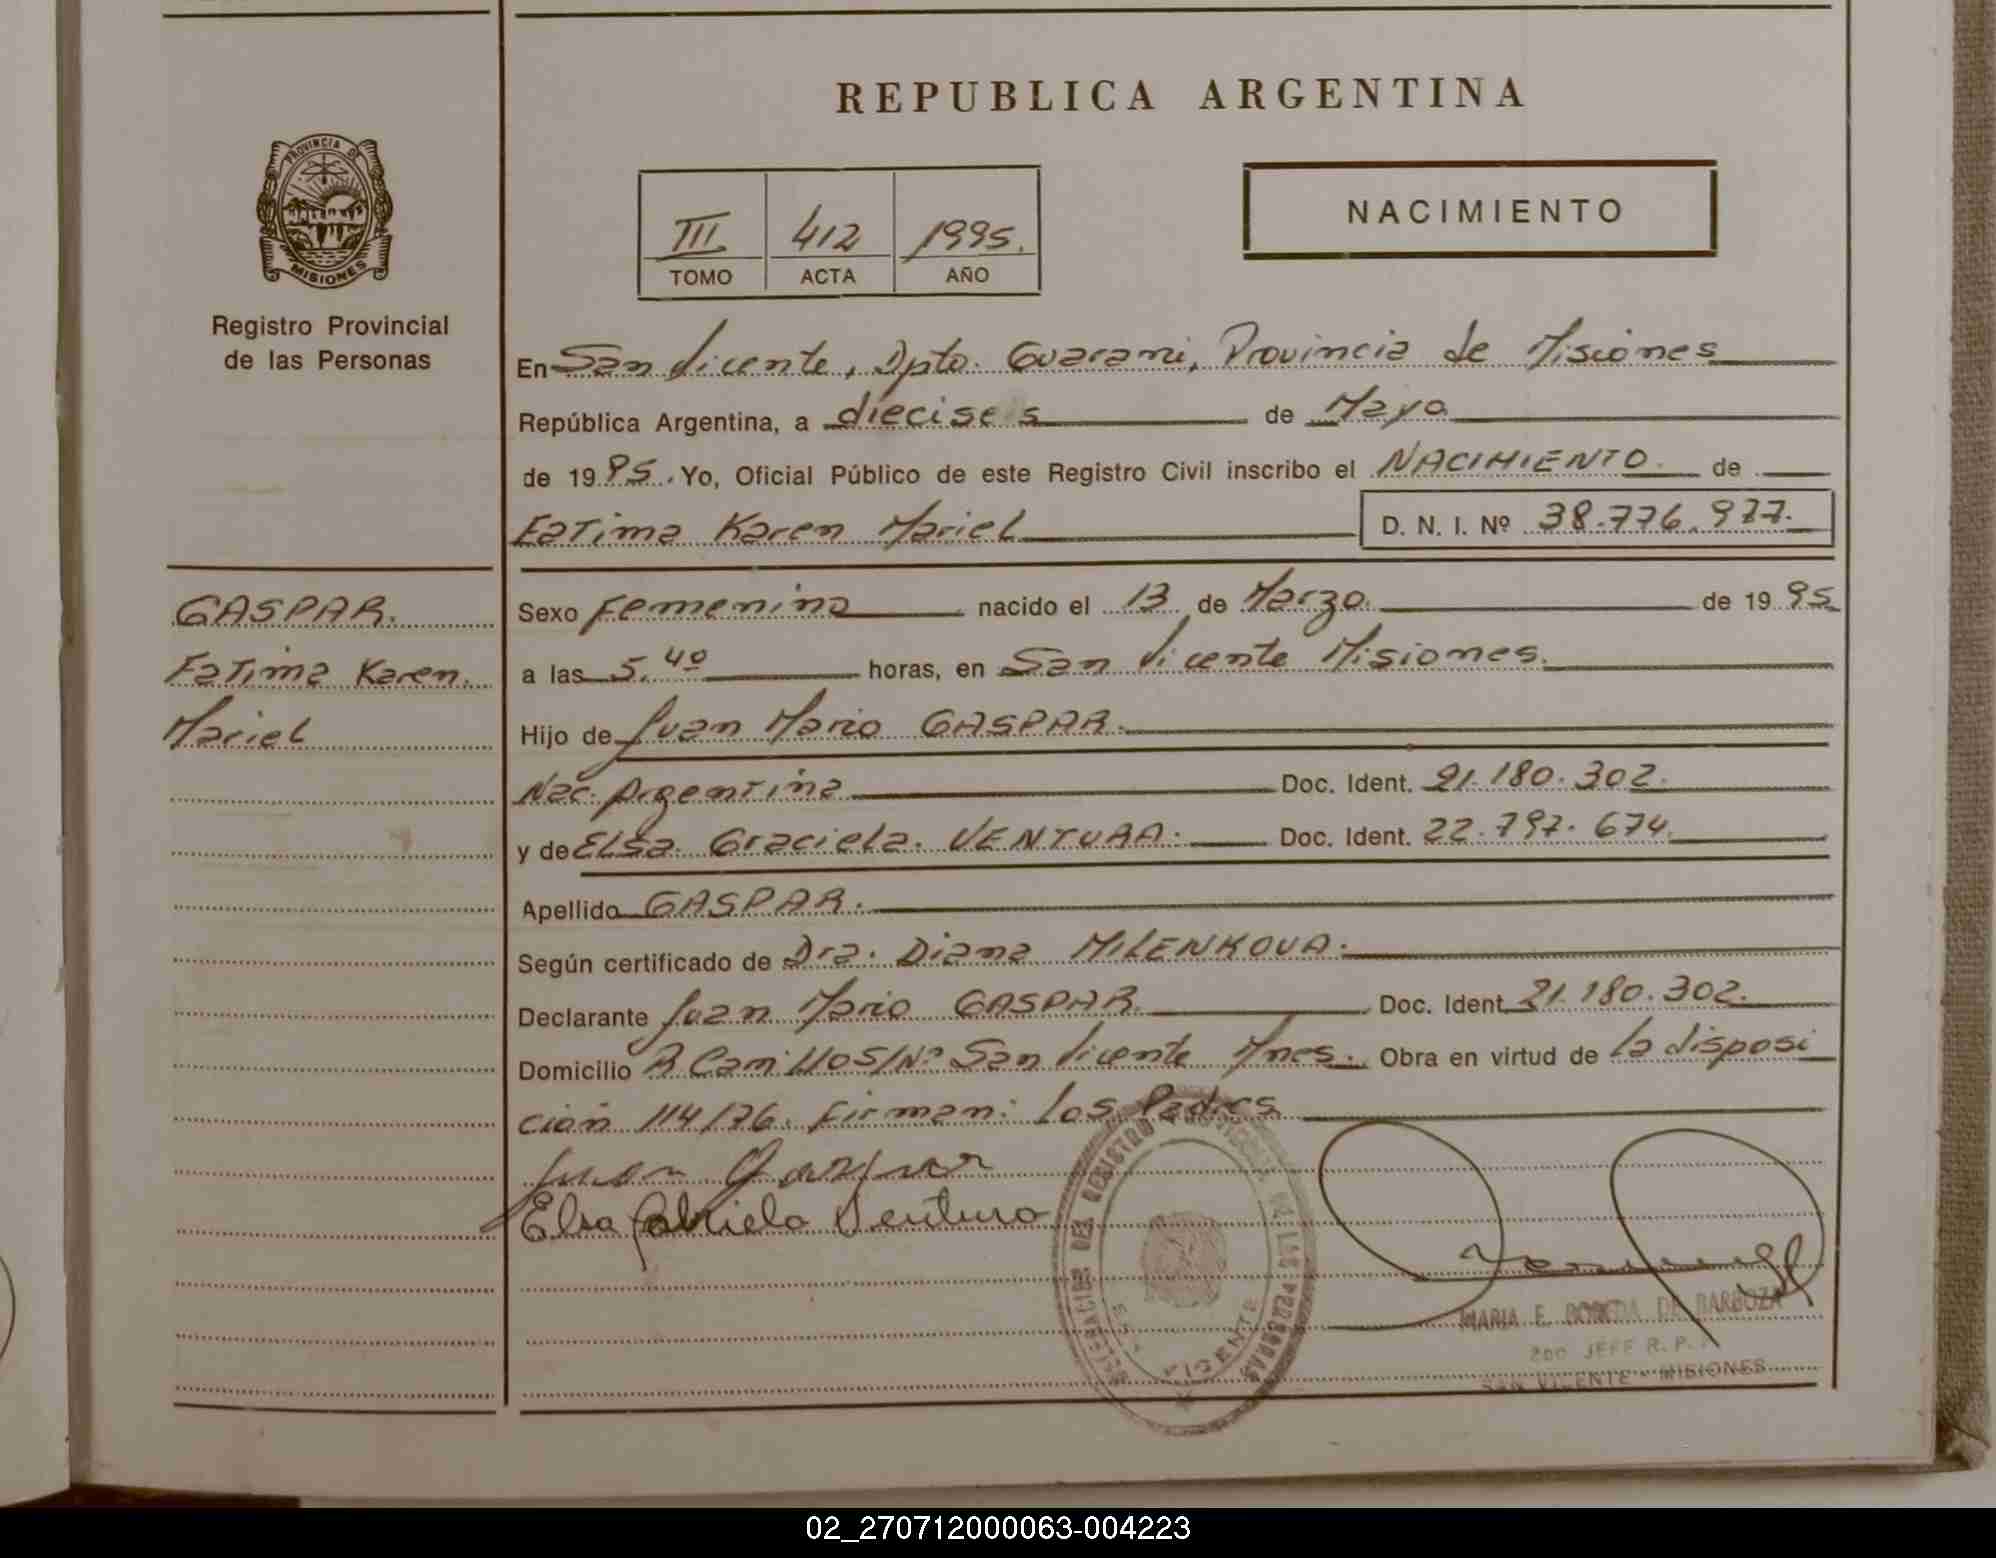 REPUBLICA ARGENTINA
PROVINCIA DE
MISIONES
Registro Provincial
de las Personas
III 412 1995.
TOMO ACTA AÑO
NACIMIENTO
En San Vicente, Dpto. Guarani, Provincia de Misiones
República Argentina, a dieciseis de Mayo
de 1995. Yo, Oficial Público de este Registro Civil inscribo el NACIMIENTO. de
Fatima Karen Mariel D. N. I. Nº 38.776.977.
GASPAR.
Fatima Karen.
Mariel
Sexo Femenino nacido el 13 de Marzo. de 1995
a las 5,40 horas, en San Vicente Misiones.
Hijo de Juan Mario GASPAR.
Nac. Argentina Doc. Ident. 21.180.302.
y de Elsa. Graciela. VENTURA. Doc. Ident. 22.797.674.
Apellido GASPAR.
Según certificado de Dra. Diana MILENKOVA.
Declarante Juan Mario GASPAR. Doc. Ident. 21.180.302.
Domicilio B Camillo S/Nº San Vicente Mnes. Obra en virtud de la disposi
ción 114/76. Firman: Los Padres
Juan Gaspar
Elsa Gabriela Ventura
DELEGACION DEL REGISTRO PROVINCIAL DE LAS PERSONAS
VICENTE
MARIA E. DE BARBOZA
JEFE R. P.
SAN VICENTE - MISIONES
02_270712000063-004223